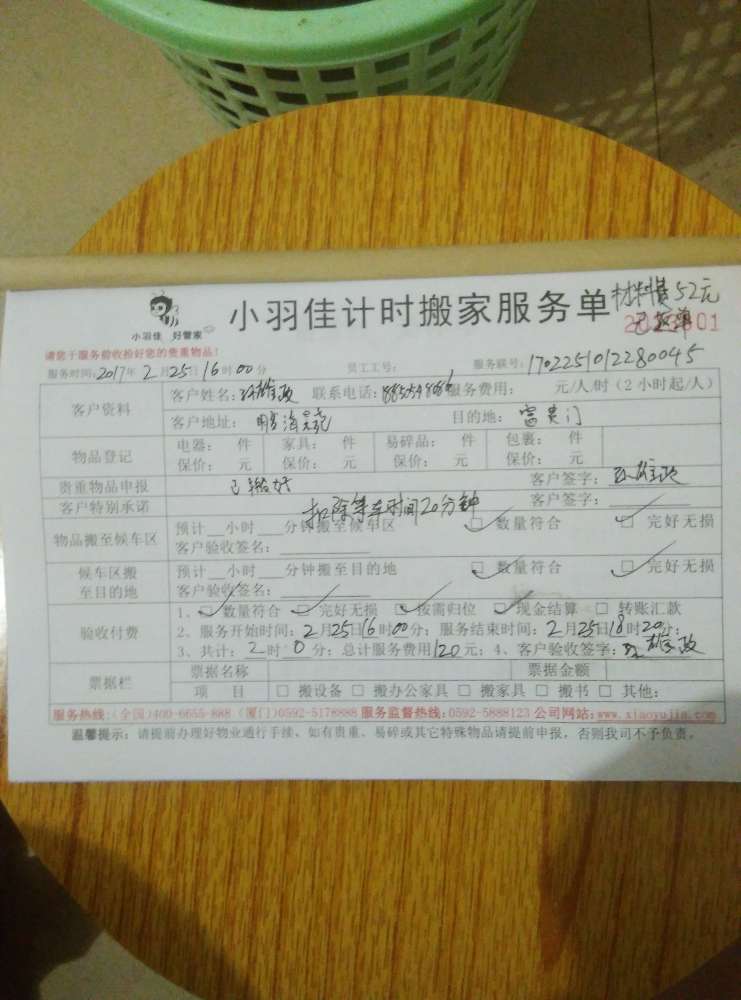 小羽佳 好管家
小羽佳计时搬家服务单
材料费52元
请您于服务前收拾好您的贵重物品!
服务时间:2017年2月25日16时00分 员工工号: 服务联号:1702251012280045
客户资料 客户姓名: 联系电话: 服务费用: 元/人/时(2小时起/人)
客户地址: 目的地:富贵门
物品登记 电器: 件 家具: 件 易碎品: 件 包裹: 件
保价: 元 保价: 元 保价: 元 保价: 元
贵重物品申报 客户签字:
客户特别承诺 扣除等车时间20分钟 客户签字:
物品搬至候车区 预计__小时__分钟搬至候车区 数量符合 完好无损
客户验收签名:
候车区搬至目的地 预计__小时__分钟搬至目的地 数量符合 完好无损
客户验收签名:
验收付费 1、数量符合 完好无损 按需归位 现金结算 转账汇款
2、服务开始时间:2月25日16时00分;服务结束时间:2月25日18时20分;
3、共计:2时0分;总计服务费用120元;4、客户验收签字:
票据栏 票据名称 票据金额
项目 搬设备 搬办公家具 搬家具 搬书 其他:
服务热线:(全国)400-6655-888 (厦门)0592-5178888 服务监督热线:0592-5888123 公司网站:www.xiaoyujia.com
温馨提示:请提前办理好物业通行手续、如有贵重、易碎或其它特殊物品请提前申报,否则我司不予负责。